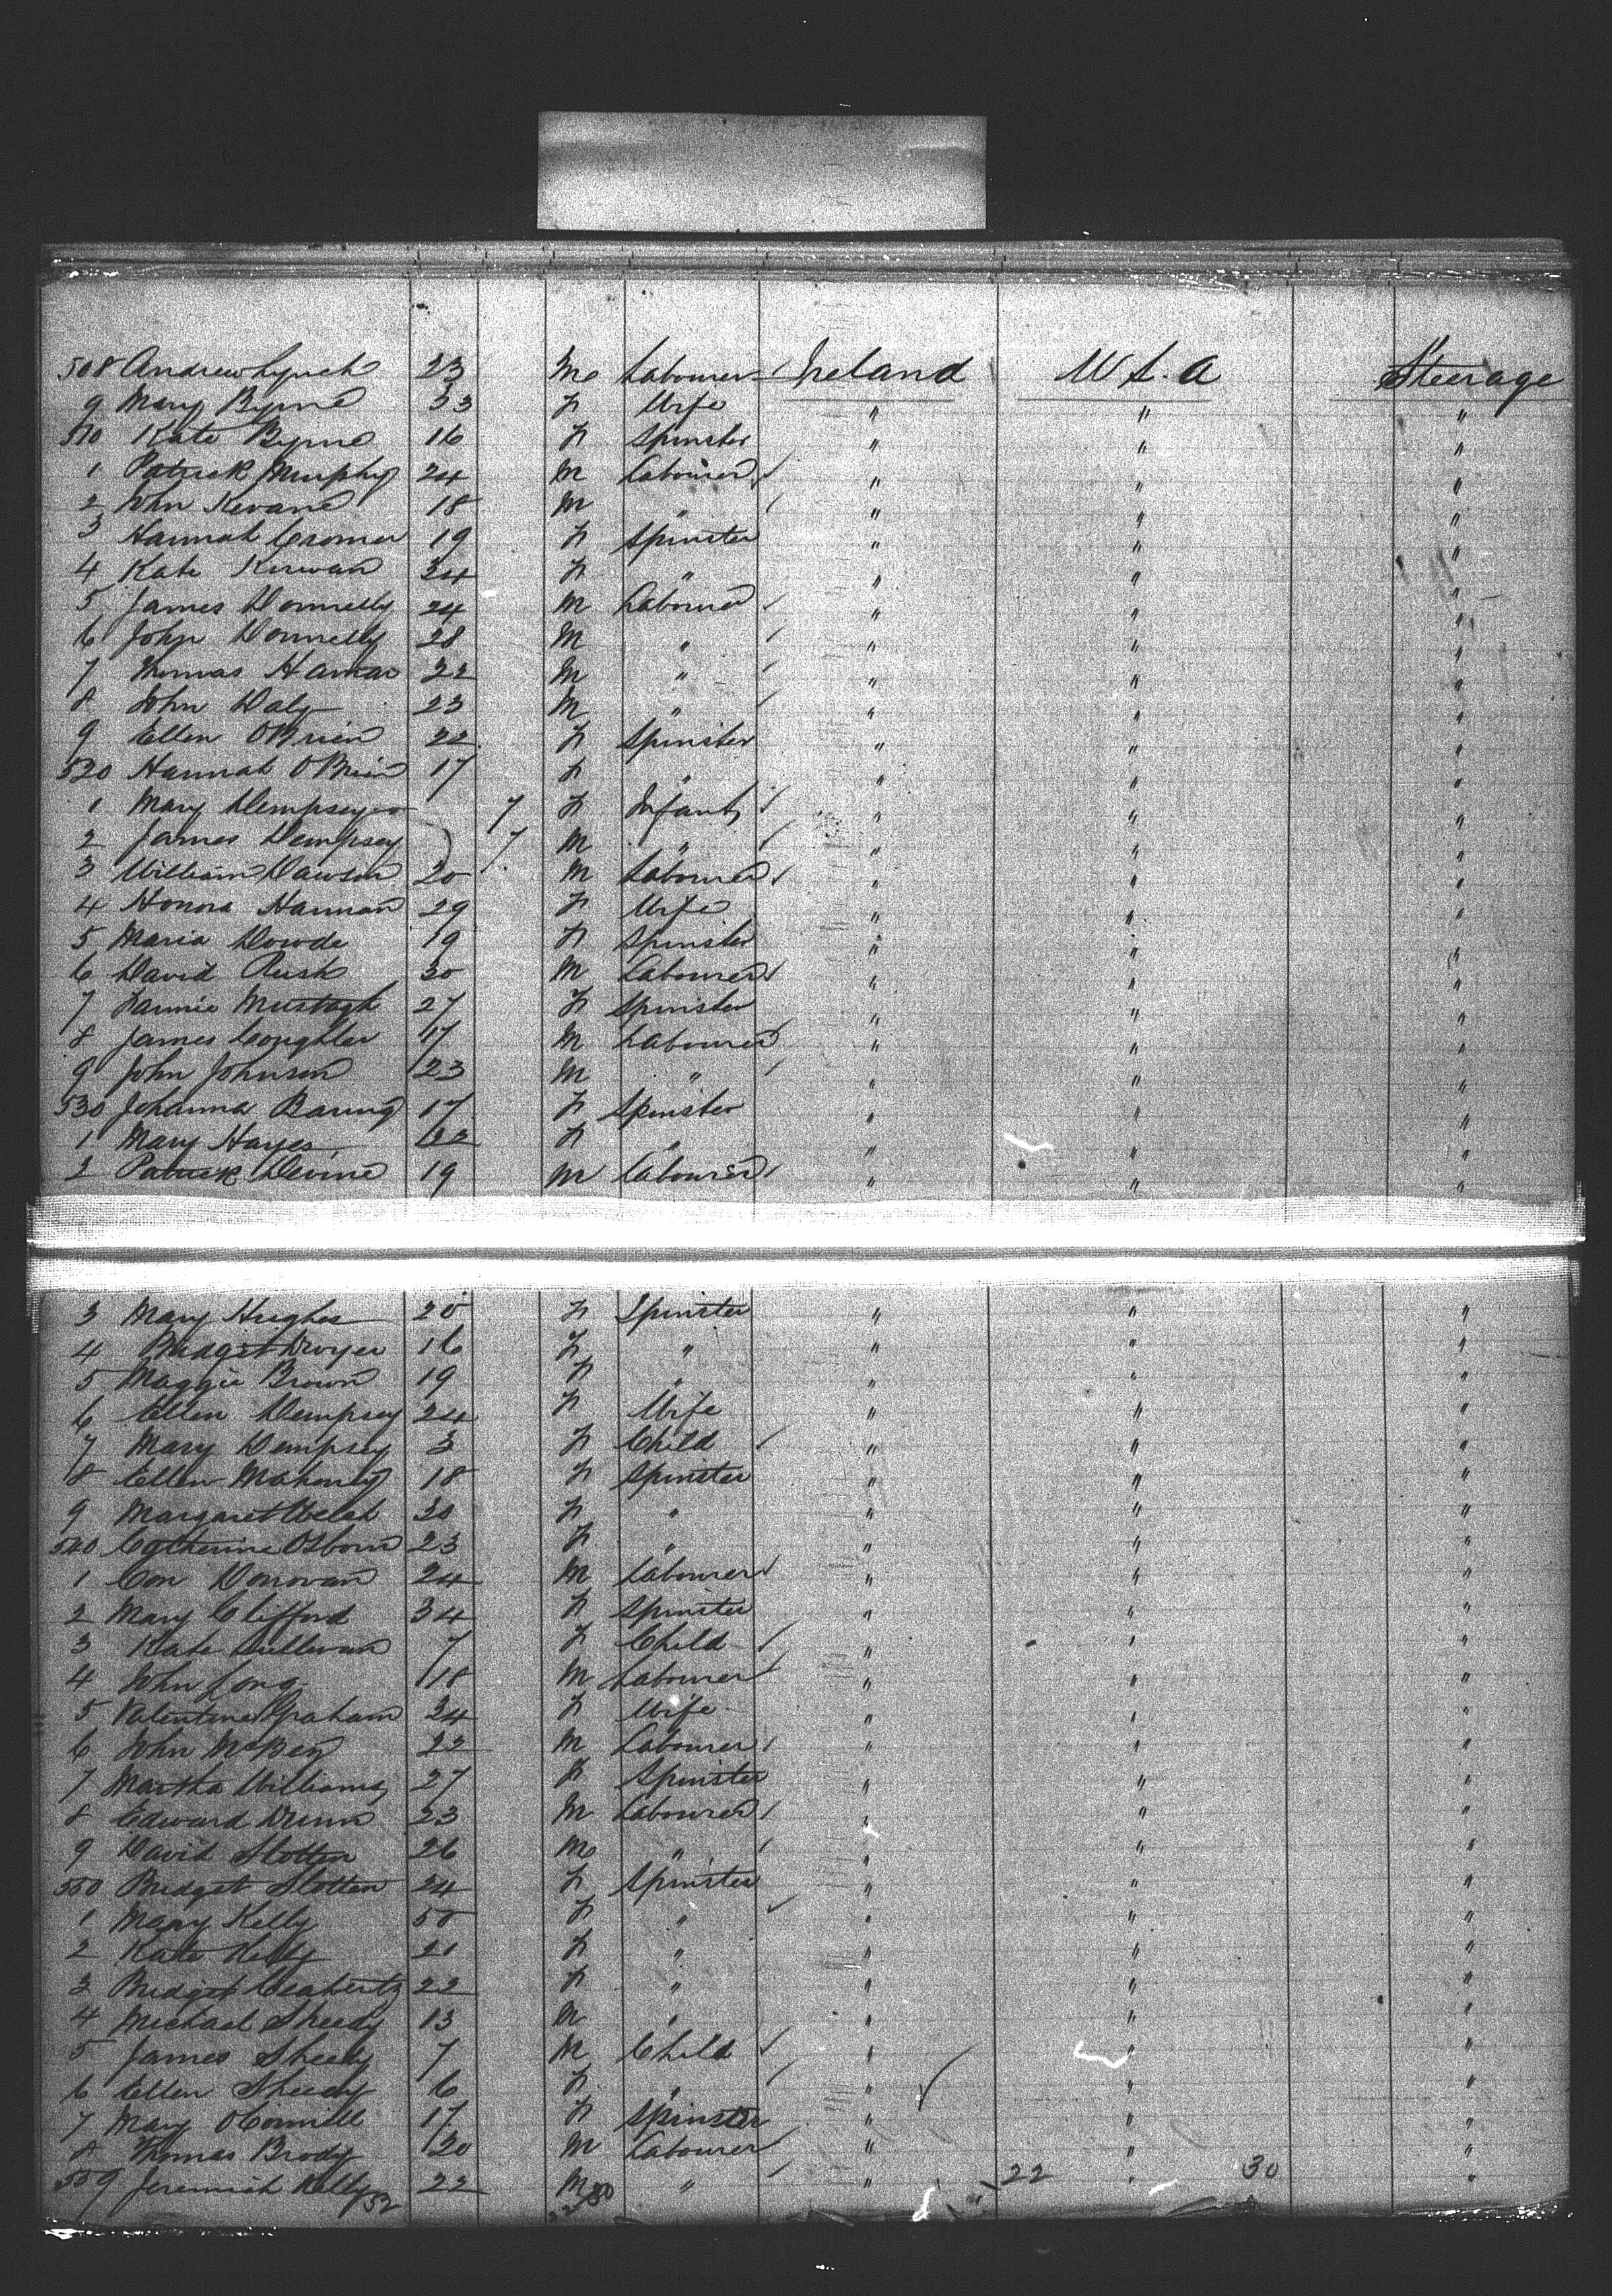 508 Andrew Lynch 23 M Labourer Ireland U S. A Steerage
9 Mary Byrne 33 F Wife " " "
510 Kate Byrne 16 F Spinster " " "
1 Patrick Murphy 24 M Labourer " " "
2 John Kevane 18 M " " " "
3 Hannah Cromer 19 F Spinster " " "
4 Kate Kirwan 24 F " " " "
5 James Donnelly 24 M Labourer " " "
6 John Donnelly 28 M " " " "
7 Thomas 22 M " " " "
8 John Daly 23 M " " " "
9 Ellen OBrien 22 F Spinster " " "
520 Hannah OBrien 17 F " " " "
1 Mary Dempsey 7 F Infant " " "
2 James Dempsey 7 M " " " "
3 William Dawson 20 M Labourer " " "
4 Honora Hannan 29 F Wife " " "
5 Maria Dowde 19 F Spinster " " "
6 David Rusk 30 M Labourer " " "
7 Fannie Murtagh 27 F Spinster " " "
8 James Coughlin 17 M Labourer " " "
9 John Johnson 23 M " " " "
530 Johanna Baring 17 F Spinster " " "
1 Mary Hayes 22 F " " " "
2 Patrick Devine 19 M Labourer " " "
3 Mary Hughes 20 F Spinster " " "
4 Bridget Dwyer 16 F " " " "
5 Maggie Brown 19 F " " " "
6 Ellen Dempsey 24 F Wife " " "
7 Mary Dempsey 3 F Child " " "
8 Ellen Mahony 18 F Spinster " " "
9 Margaret Welsh 30 F " " " "
540 Catherine Osborn 23 F " " " "
1 Con Donovan 24 M Labourer " " "
2 Mary Clifford 34 F Spinster " " "
3 Kate Sullivan 7 F Child " " "
4 John Long 18 M Labourer " " "
5 Valentine Graham 24 F Wife " " "
6 John 22 M Labourer " " "
7 Martha Williams 27 F Spinster " " "
8 Edward Drum 23 M Labourer " " "
9 David Slotten 26 M " " " "
550 Bridget Slotten 24 F Spinster " " "
1 Mary Kelly 50 F " " " "
2 Kate Kelly 21 F " " " "
3 Bridget 22 F " " " "
4 Michael Sheedy 13 M " " " "
5 James Sheedy 7 M Child " " "
6 Ellen Sheedy 6 F " " " "
7 Mary OConnell 17 F Spinster " " "
8 Thomas Brody 20 M Labourer " " "
559 Jeremiah Kelly 22 M " " 22 " 30 "
52 22 30